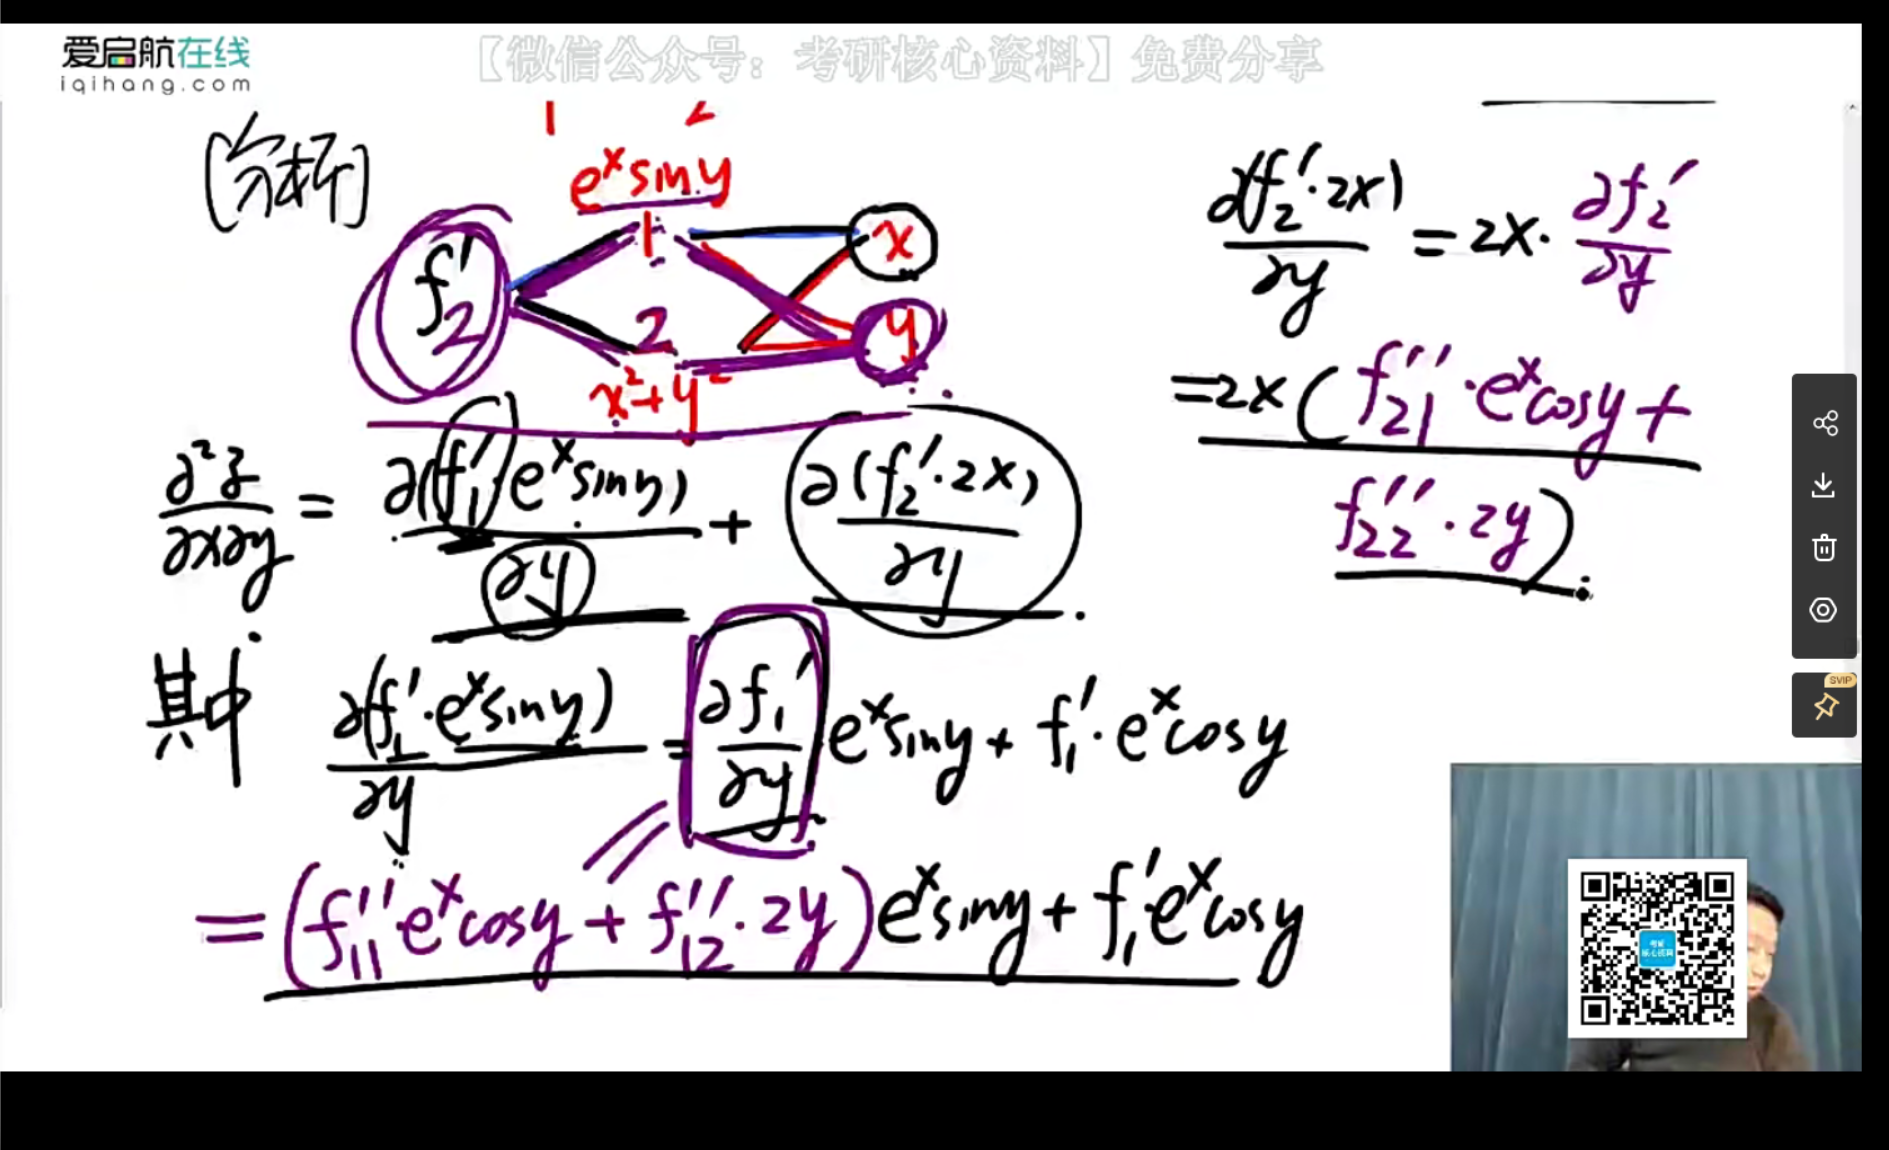 爱启航在线
iqihang.com
【微信公众号：考研核心资料】免费分享
[分析]
1 2
e^x sin y
1
f_2'
2
x²+y²
x
y
∂²z/∂x∂y = ∂(f_1'·e^x sin y)/∂y + ∂(f_2'·2x)/∂y.
其中 ∂(f_1'·e^x sin y)/∂y = ∂f_1'/∂y e^x sin y + f_1'·e^x cos y
= (f_11''·e^x cos y + f_12''·2y) e^x sin y + f_1' e^x cos y
∂(f_2'·2x)/∂y = 2x·∂f_2'/∂y
= 2x(f_21''·e^x cos y +
f_22''·2y).
SVIP